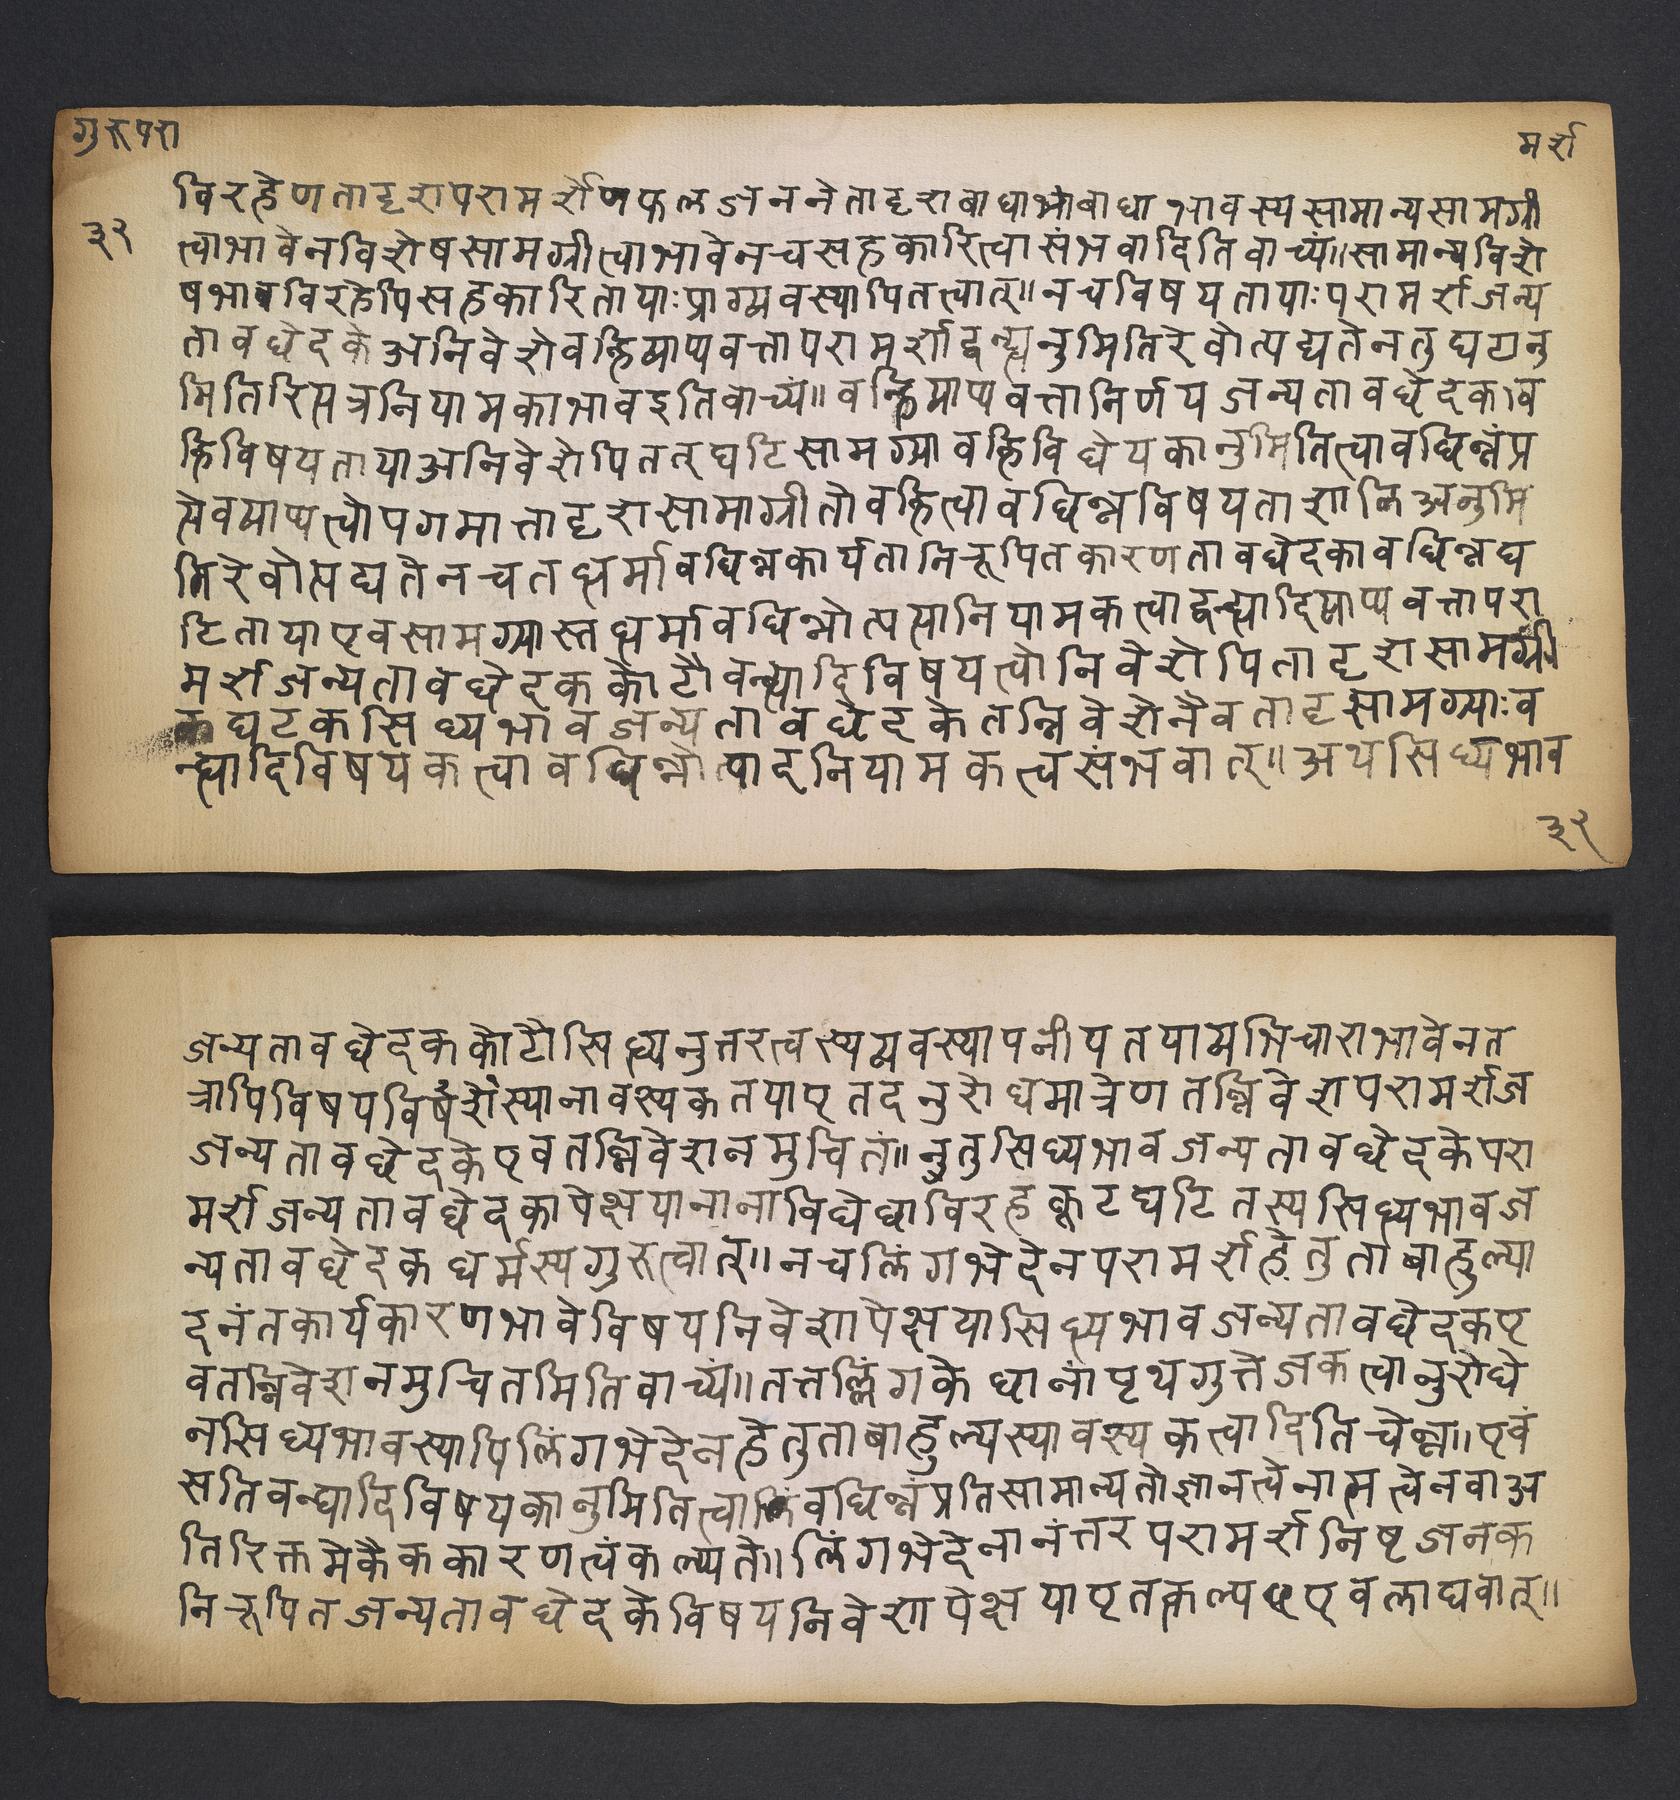 गुरूपरा
मर्श
विरहेणतादृशपरामर्शेणफलजननेतादृशबाधाभावाधा भावस्यसामान्यसामग्री
३२
त्वाभावेनविशेषसामग्रीत्वाभावेनचसहकारित्वासंभवादितिवाच्यं॥सामान्यविशे
षभावविरहेपिसहकारितायाःप्राग्व्यवस्थापितत्वात्॥नचविषयतायाःपरामर्शजन्य
तावछेदके अनिवेशेवह्निव्याप्यवत्तापरामर्शाद्वन्ह्यनुमितिरेवोत्पद्यतेनतुघटानु
मितिरित्यत्रनियामकाभावइतिवाच्यं॥वन्हिव्याप्यवत्तानिर्णयजन्यतावछेदकेव
ह्निविषयतायाअनिवेशेपितत्घटिसामग्र्यावह्निविधेयकानुमितित्वावछिन्नंप्र
त्येवव्याप्यत्वोपगमात्तादृशसामाग्रीतोवह्नित्वावछिन्नविषयताशालिअनुमि
तिरेवोत्पद्यतेनचतद्धर्मावछिन्नकार्यतानिरूपितकारणतावछेदकावछिन्नघ
टितायाएवसामग्र्यास्तद्धर्मावछिन्नोत्पत्त्यानियामकत्वाद्वन्ह्यादिव्याप्यवत्तापरा
मर्शजन्यतावछेदककोटौवन्ह्यादिविषयत्वोनिवेशेपितादृशसामग्री
कघटकसिध्यभावजन्यतावछेदकेतन्निवेशेनैवतादृसामग्र्याःव
न्ह्यादिविषयकत्वावछिन्नोत्पादनियामकत्वसंभवात्॥अथसिध्यभाव
३२
जन्यतावछेदककोटौसिध्यनुत्तरत्वस्यव्यवस्थापनीयतयाव्यभिचाराभावेनत
त्रापिविषयविषेशस्यानावस्यकतयाएतदनुरोधमात्रेणतन्निवेशपरामर्शज
जन्यतावछेदकेएवतन्निवेशनमुचितं॥नुतुसिध्यभावजन्यतावछेदकेपरा
मर्शजन्यतावछेदकापेक्षयानानाविधेछाविरहकूटघटितस्यसिध्यभावज
न्यतावछेदकधर्मस्यगुरूत्वात्॥नचलिंगभेदेनपरामर्शहेतुताबाहुल्या
दनंतकार्यकारणभावेविषयनिवेशापेक्षयासिध्यभावजन्यतावछेदकए
वतन्निवेशनमुचितमितिवाच्यं॥तत्तल्लिंगकेछानांपृथगुत्तेजकत्वानुरोधे
नसिध्यभावस्यापिलिंगभेदेनहेतुताबाहुल्यस्यावस्यकत्वादितिचेन्न॥एवं
सतिवन्ह्यादिविषयकानुमितित्वावछिन्नंप्रतिसामान्यतोज्ञानत्वेनात्मत्वेनवाअ
तिरिक्तमेकैककारणत्वंकल्प्यते॥लिंगभेदेनानंत्तरपरामर्शनिष्टजनक
निरूपितजन्यतावछेदकेविषयनिवेशापेक्षयाएतत्कल्पएवलाघवात्॥